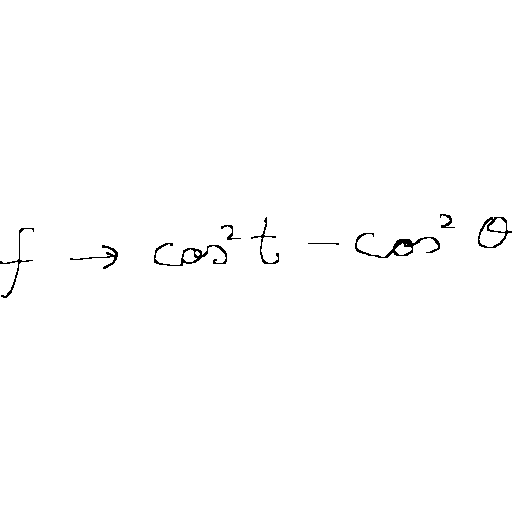 f → cos² t − cos² θ